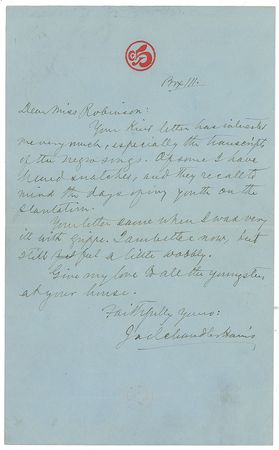 Box 111-
Dear Miss Robinson:
Your kind letter has interested
me very much, especially the transcripts
of the negro songs. Of some I have
heard snatches, and they recall to
mind the days of my youth on the
plantation.
Your letter came when I was very
ill with grippe. I am better now, but
still feel a little wobbly.
Give my love to all the youngsters
at your house.
Faithfully yours:
Joel Chandler Harris